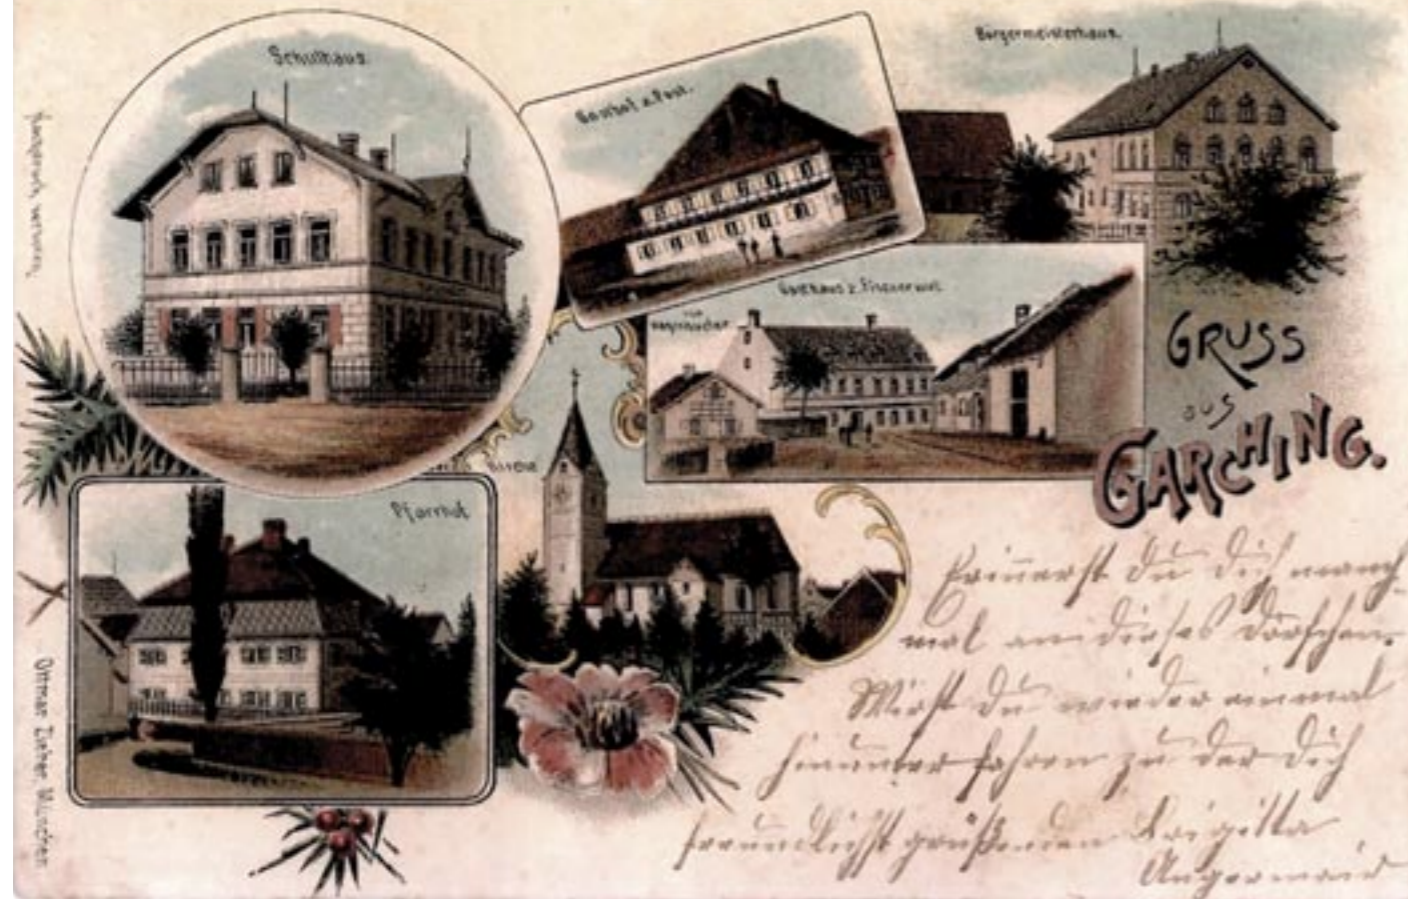 Schulhaus.
Gasthof z. Post.
Bürgermeisterhaus.
Gasthaus z. Fischerwirt.
Kirche
Pfarrhof
GRUSS
aus
GARCHING.
Ottmar Zieher, München
Erinnerst du dich manch-
mal an dieses Dörfchen.
Wirst du wieder einmal
hinunter fahren zu der dich
freundlichst grüßenden Brigitta
Angermaier